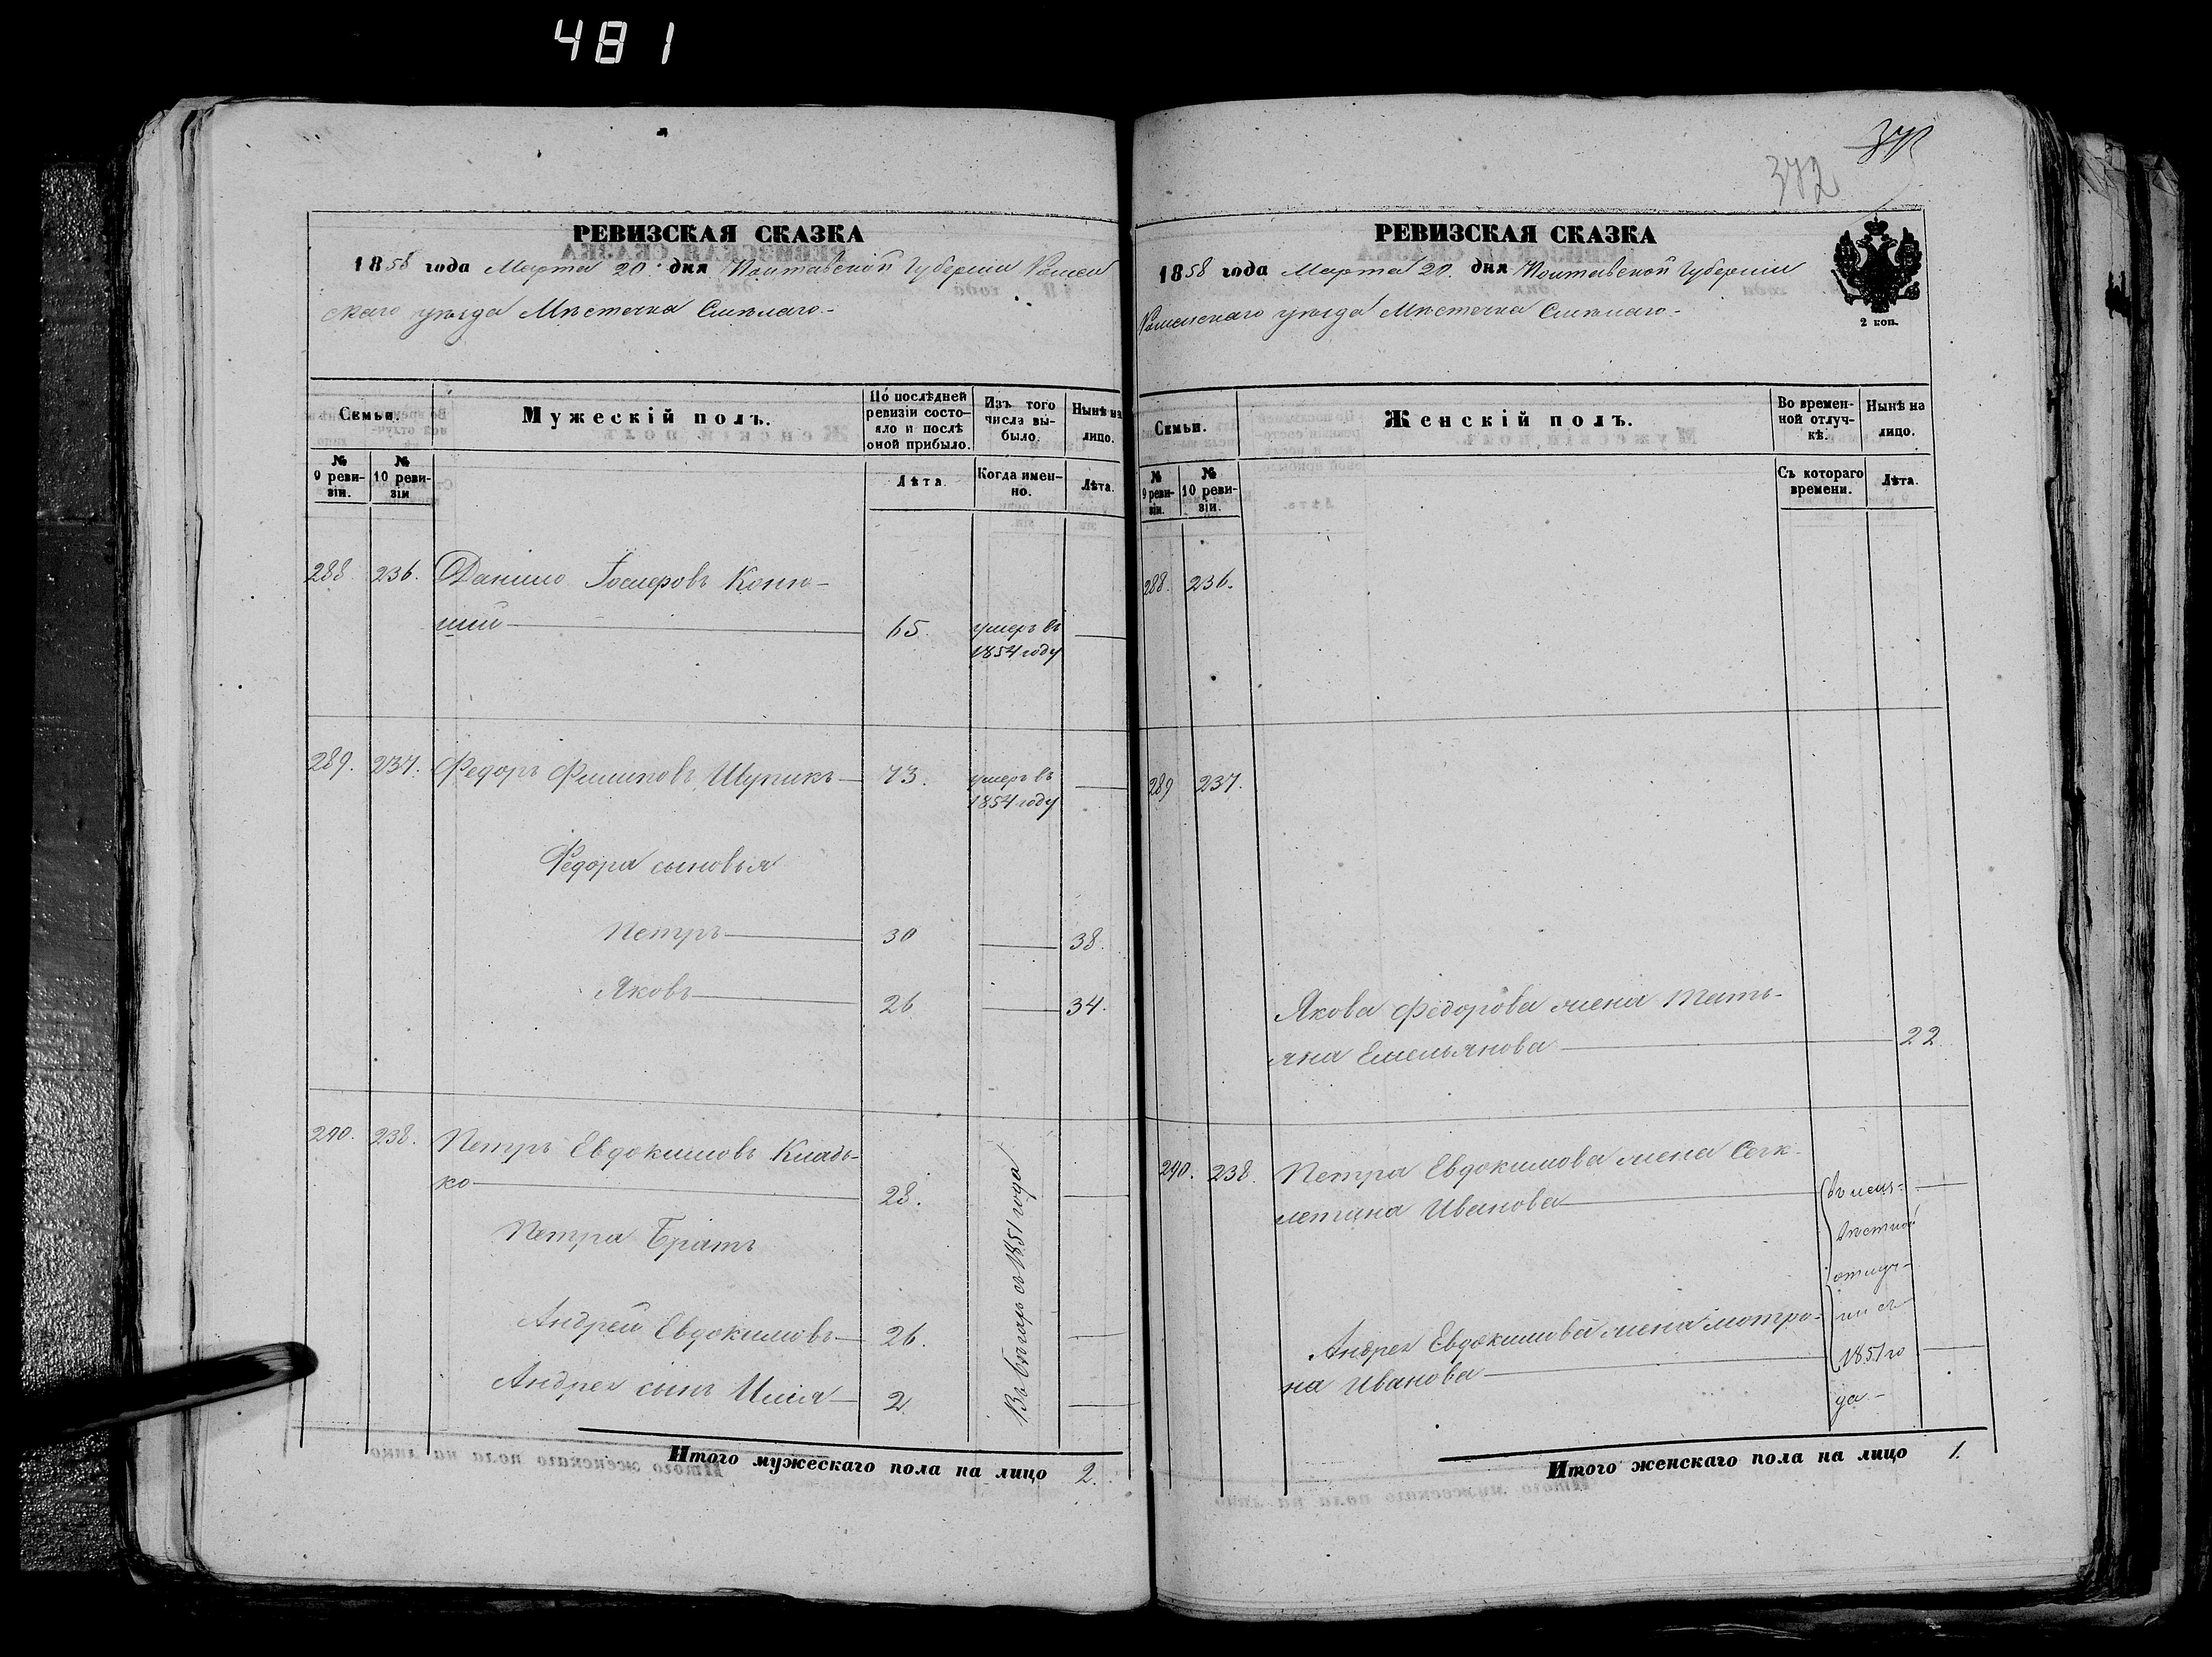 481
372
РЕВИЗСКАЯ СКАЗКА
1858 года Марта 20. дня Полтавской Губернiи Ромен
скаго уѣзда Мѣстечка Смѣлаго.-
Семьи.
Мужескій полъ.
По послѣдней ревизіи состояло и послѣ оной прибыло.
Изъ того числа выбыло.
Нынѣ на лицо.
№ 9 ревизіи.
№ 10 ревизіи
Лѣта
Когда именно.
Лѣта.
288. 236. Данило Іосифовъ Коню-
шій 65. умеръ въ
1854 году
289. 237. Федоръ Филиповъ Шупикъ 73. умеръ въ
1854 году
Федора сыновья
Петръ 30 38.
Яковъ 26 34.
290. 238. Петръ Евдокимовъ Кладь-
ко 28.
Петра Братъ
Андрей Евдокимовъ 26.
Андрея сынъ Илья 2
Въ бѣгахъ съ 1851 года
Итого мужескаго пола на лицо 2.
РЕВИЗСКАЯ СКАЗКА
1858 года Марта 20. дня Полтавской Губернiи
Роменскаго уѣзда Мѣстечка Смѣлаго.-
2 коп.
Семьи.
Женскій полъ.
Во временной отлучкѣ.
Нынѣ на лицо.
№ 9 ревизіи.
№ 10 ревизіи.
Съ котораго времени.
Лѣта.
288. 236.
289 237.
Якова Федорова жена Тать-
яна Емельянова 22
290. 238. Петра Евдокимова жена Сек-
летина Иванова
Андрея Евдокимова жена Мотро-
на Иванова
въ неиз-
вѣстной
отлуч-
ки съ
1851 го
да-
Итого женскаго пола на лицо 1.